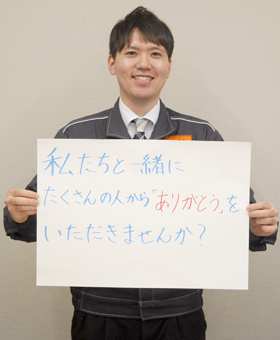 私たちと一緒に
たくさんの人から「ありがとう」を
いただきませんか？